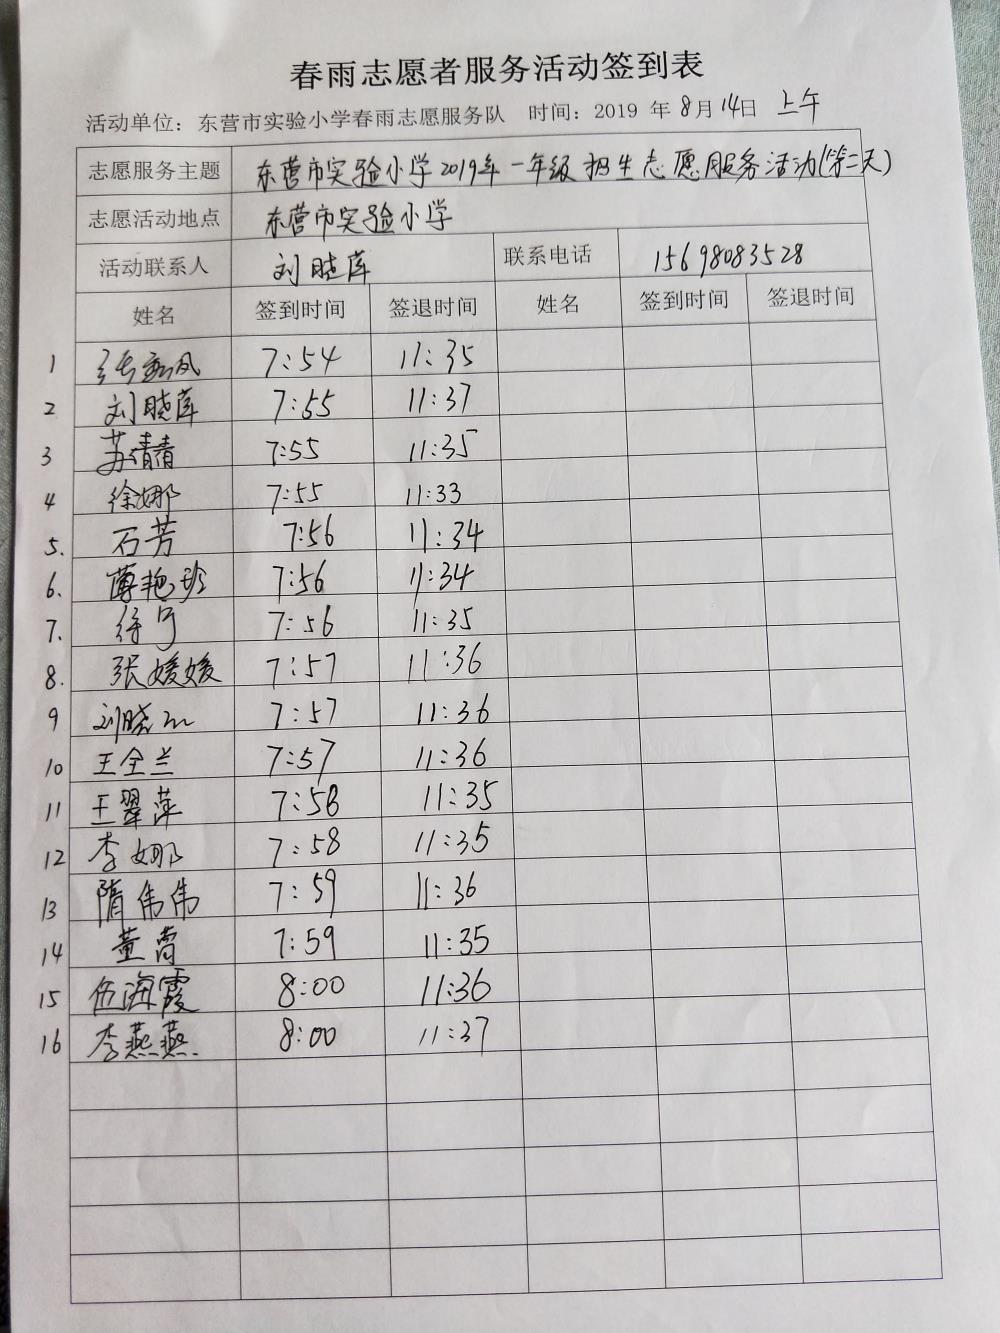 春雨志愿者服务活动签到表
活动单位：东营市实验小学春雨志愿服务队 时间：2019 年 8月 14日 上午
志愿服务主题 东营市实验小学2019年一年级招生志愿服务活动(第二天)
志愿活动地点 东营市实验小学
活动联系人 刘晓萍 联系电话 15698083528
姓名 签到时间 签退时间 姓名 签到时间 签退时间
1 7:54 11:35
2 刘晓萍 7:55 11:37
3 苏倩倩 7:55 11:35
4 徐娜 7:55 11:33
5. 石芳 7:56 11:34
6. 7:56 11:34
7. 7:56 11:35
8. 张媛媛 7:57 11:36
9 刘晓 7:57 11:36
10 王全兰 7:57 11:36
11 王翠萍 7:58 11:35
12 李娜 7:58 11:35
13 隋伟伟 7:59 11:36
14 董霄 7:59 11:35
15 伍海霞 8:00 11:36
16 李燕燕 8:00 11:37